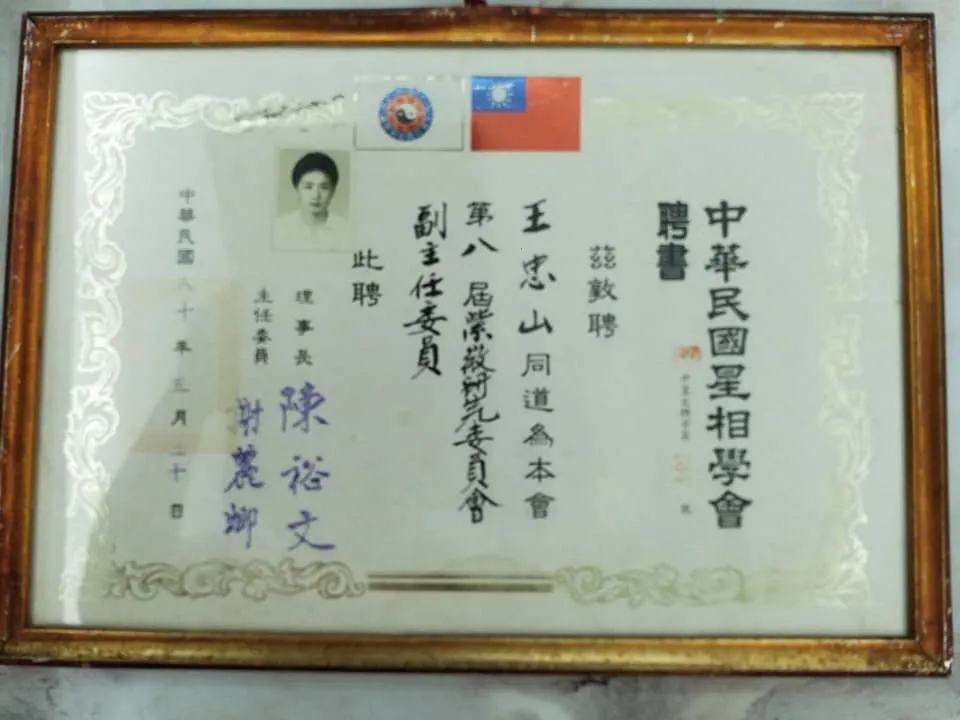 中華民國星相學會
聘書
茲敦聘
王忠山同道為本會
第八屆紫微研究委員會
副主任委員
此聘
理事長 陳裕文
主任委員 謝麗卿
中華民國八十年三月二十日